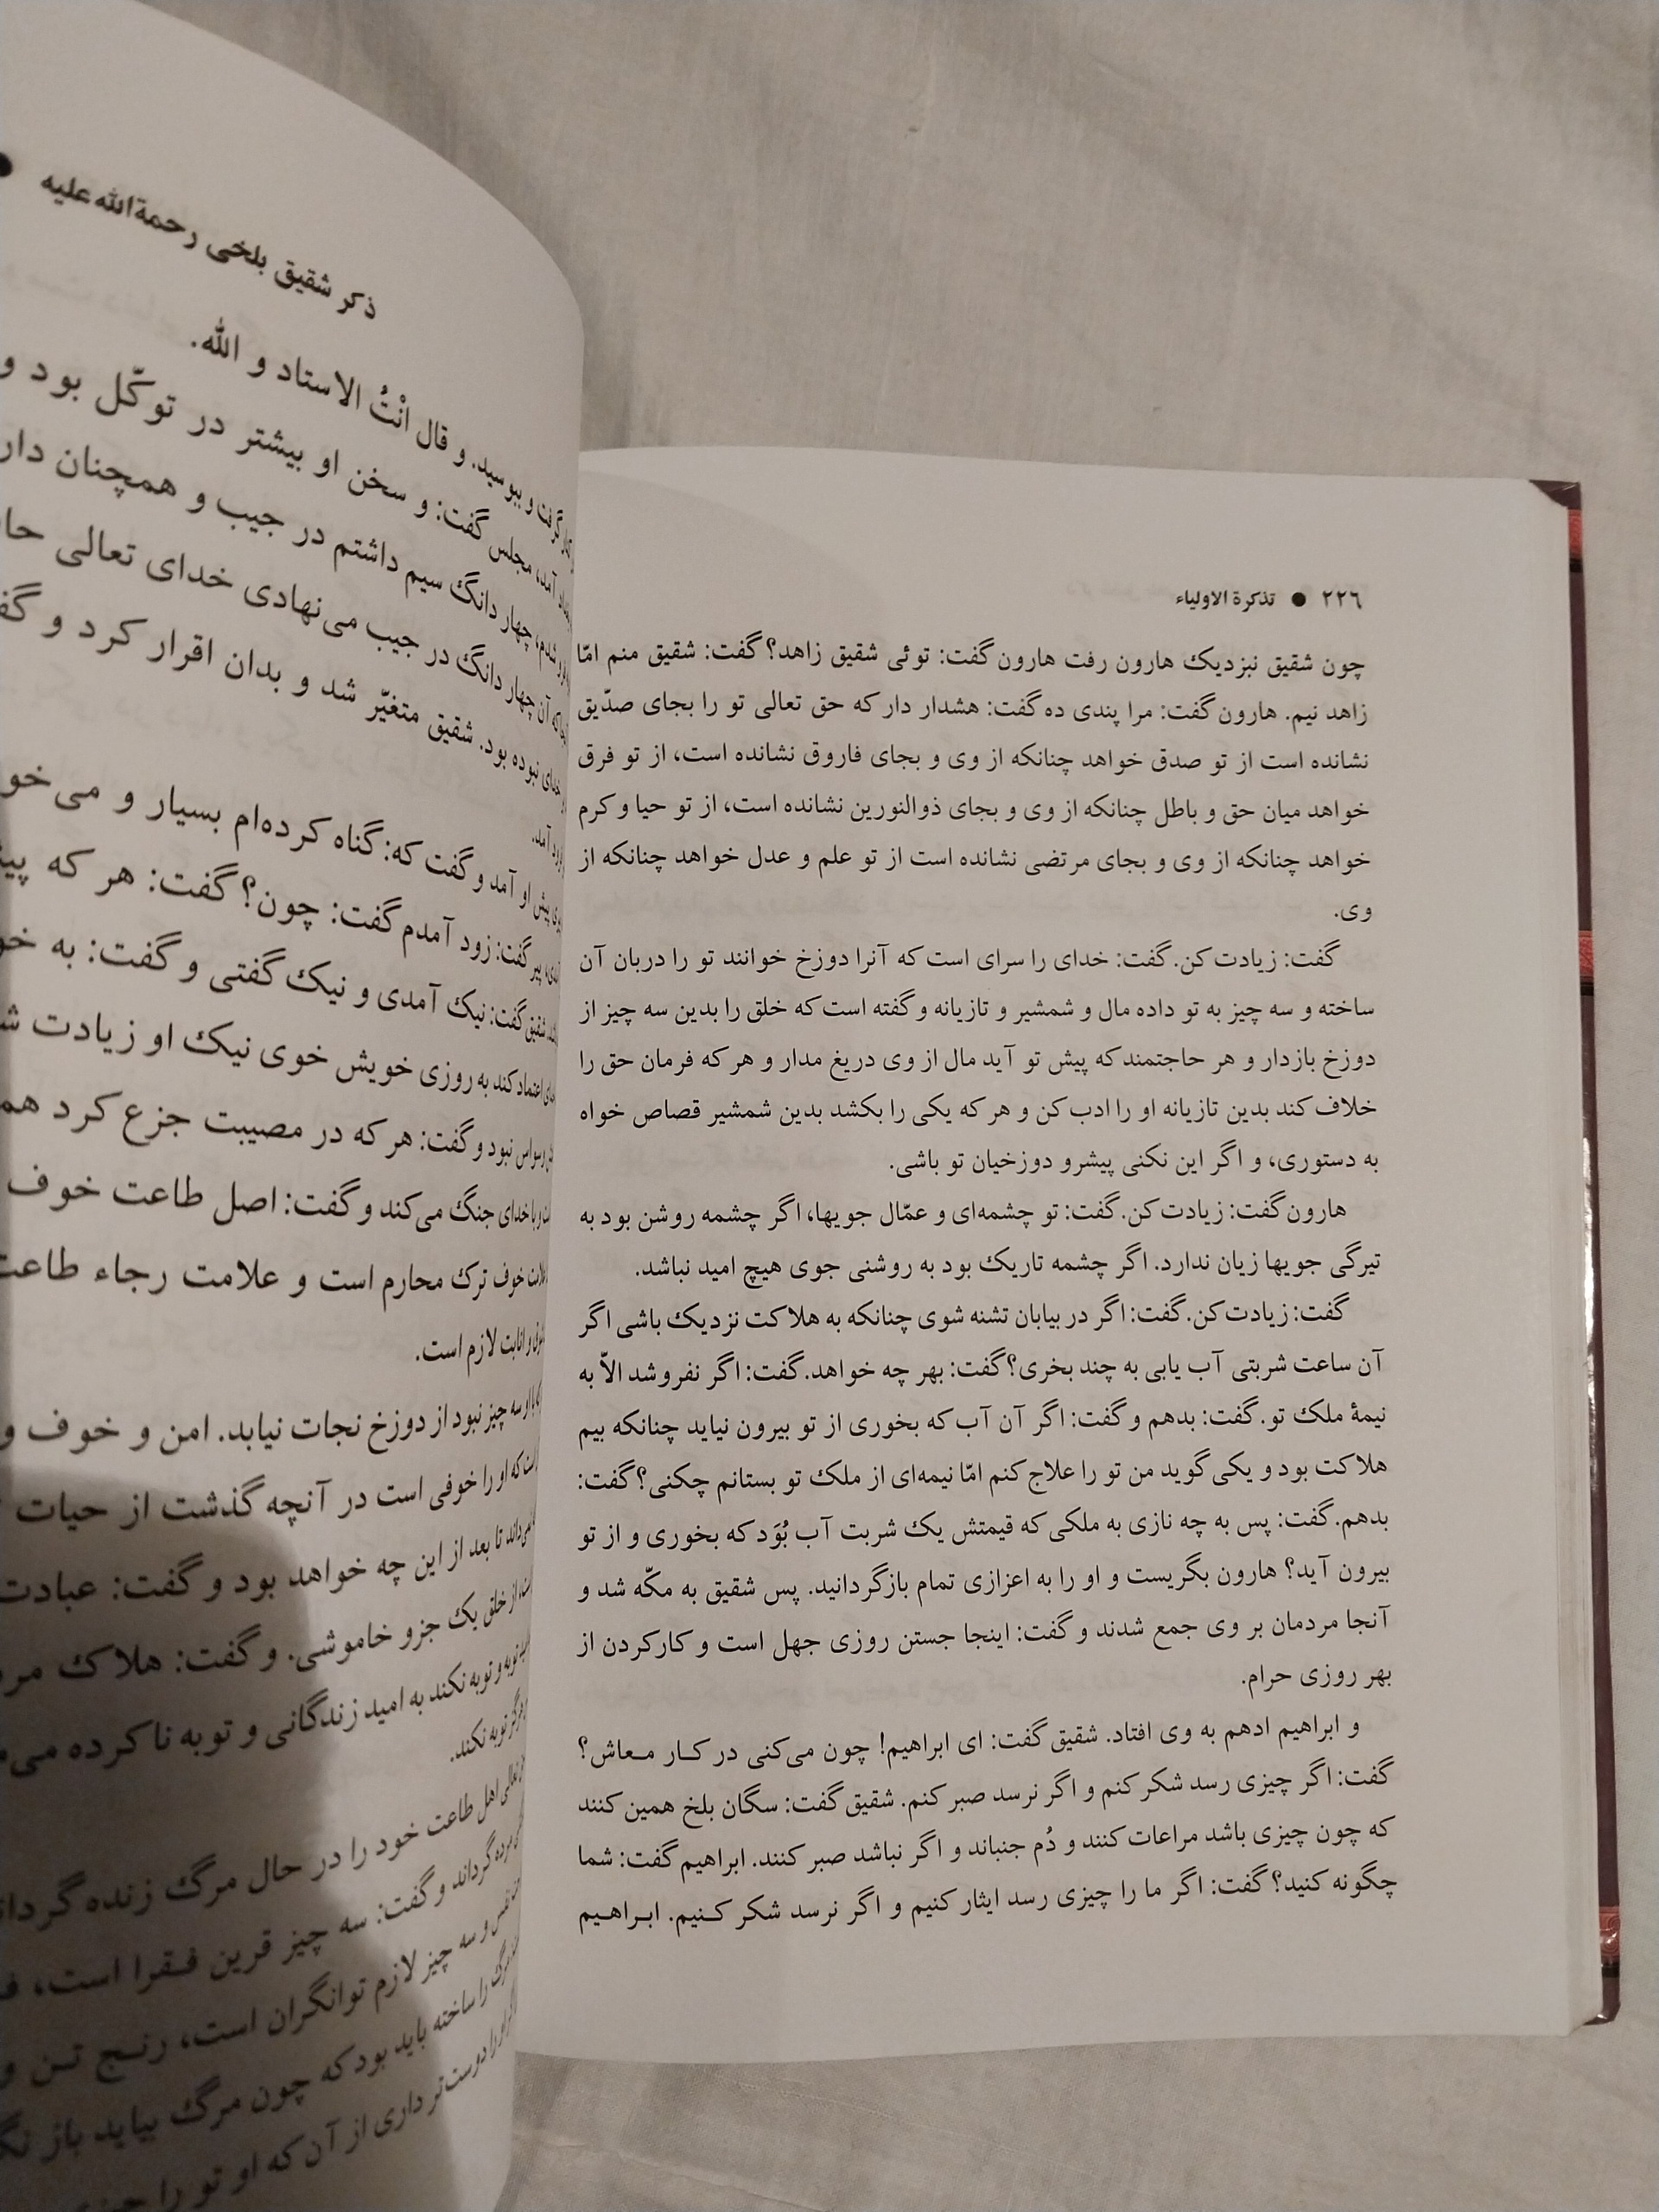 ٢٢٦ ● تذكرة الاولياء
چون شقیق نبزدیک هارون رفت هارون گفت: توئی شقیق زاهد؟ گفت: شقیق منم امّا
زاهد نیم. هارون گفت: مرا پندی ده گفت: هشدار دار که حق تعالی تو را بجای صدّیق
نشانده است از تو صدق خواهد چنانکه از وی و بجای فاروق نشانده است، از تو فرق
خواهد میان حق و باطل چنانکه از وی و بجای ذوالنورین نشانده است، از تو حیا و کرم
خواهد چنانکه از وی و بجای مرتضی نشانده است از تو علم و عدل خواهد چنانکه از
وی.
گفت: زیادت کن. گفت: خدای را سرای است که آنرا دوزخ خوانند تو را دربان آن
ساخته و سه چیز به تو داده مال و شمشیر و تازیانه و گفته است که خلق را بدین سه چیز از
دوزخ بازدار و هر حاجتمند که پیش تو آید مال از وی دریغ مدار و هر که فرمان حق را
خلاف کند بدین تازیانه او را ادب کن و هر که یکی را بکشد بدین شمشیر قصاص خواه
به دستوری، و اگر این نکنی پیشرو دوزخیان تو باشی.
هارون گفت: زیادت کن. گفت: تو چشمه‌ای و عمّال جویها، اگر چشمه روشن بود به
تیرگی جویها زیان ندارد. اگر چشمه تاریک بود به روشنی جوی هیچ امید نباشد.
گفت: زیادت کن. گفت: اگر در بیابان تشنه شوی چنانکه به هلاکت نزدیک باشی اگر
آن ساعت شربتی آب یابی به چند بخری؟ گفت: بهر چه خواهد. گفت: اگر نفروشد الاّ به
نیمهٔ ملک تو. گفت: بدهم و گفت: اگر آن آب که بخوری از تو بیرون نیاید چنانکه بیم
هلاکت بود و یکی گوید من تو را علاج کنم امّا نیمه‌ای از ملک تو بستانم چکنی؟ گفت:
بدهم. گفت: پس به چه نازی به ملکی که قیمتش یک شربت آب بُوَد که بخوری و از تو
بیرون آید؟ هارون بگریست و او را به اعزازی تمام بازگردانید. پس شقیق به مکّه شد و
آنجا مردمان بر وی جمع شدند و گفت: اینجا جستن روزی جهل است و کارکردن از
بهر روزی حرام.
و ابراهیم ادهم به وی افتاد. شقیق گفت: ای ابراهیم! چون می‌کنی در کار معاش؟
گفت: اگر چیزی رسد شکر کنم و اگر نرسد صبر کنم. شقیق گفت: سگان بلخ همین کنند
که چون چیزی باشد مراعات کنند و دُم جنباند و اگر نباشد صبر کنند. ابراهیم گفت: شما
چگونه کنید؟ گفت: اگر ما را چیزی رسد ایثار کنیم و اگر نرسد شکر کنیم. ابراهیم
ذکر شقیق بلخی رحمةالله‌علیه ●
گرفت و ببوسید. و قال انْتُ الاستاد و الله.
آمد، مجلس گفت: و سخن او بیشتر در توکّل بود و
چهار دانگ سیم داشتم در جیب و همچنان
آن چهار دانگ در جیب می‌نهادی خدای تعالی
نبوده بود. شقیق متغیّر شد و بدان اقرار کرد و
آمد.
پیش او آمد و گفت که: گناه کرده‌ام بسیار و
پیر گفت: زود آمدم گفت: چون؟ گفت: هر که
شقیق گفت: نیک آمدی و نیک گفتی و گفت: به
اعتماد کند به روزی خویش خوی نیک او زیادت
وسواس نبود و گفت: هر که در مصیبت جزع کرد
با خدای جنگ می‌کند و گفت: اصل طاعت خوف
خوف ترک محارم است و علامت رجاء
و انابت لازم است.
سه چیز نبود از دوزخ نجات نیابد. امن و خوف و
که او را خوفی است در آنچه گذشت از حیات
تا بعد از این چه خواهد بود و گفت:
از خلق یک جزو خاموشی. و گفت: هلاک
توبه و توبه نکند به امید زندگانی و توبه ناکرده
توبه نکند.
اهل طاعت خود را در حال مرگ زنده
گرداند و گفت: سه چیز قرین فقرا است،
و سه چیز لازم توانگران است، رنج تن و
را ساخته باید بود که چون مرگ بیاید باز
را دوست‌تر داری از آن که او تو را